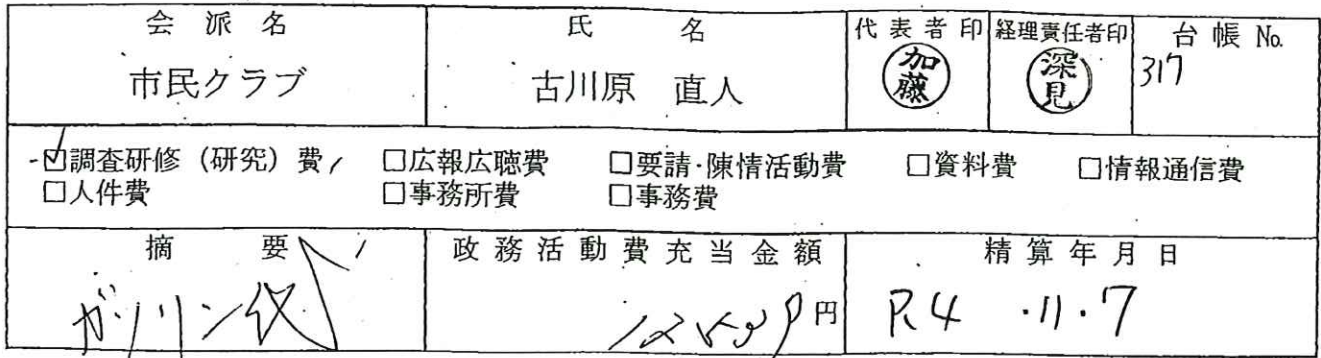 会派名 氏名 代表者印 経理責任者印 台帳 No.
市民クラブ 古川原 直人 加藤 深見 317
☑調査研修(研究)費 □広報広聴費 □要請・陳情活動費 □資料費 □情報通信費
□人件費 □事務所費 □事務費
摘要 政務活動費充当金額 精算年月日
ガソリン代 円 R4.11.7